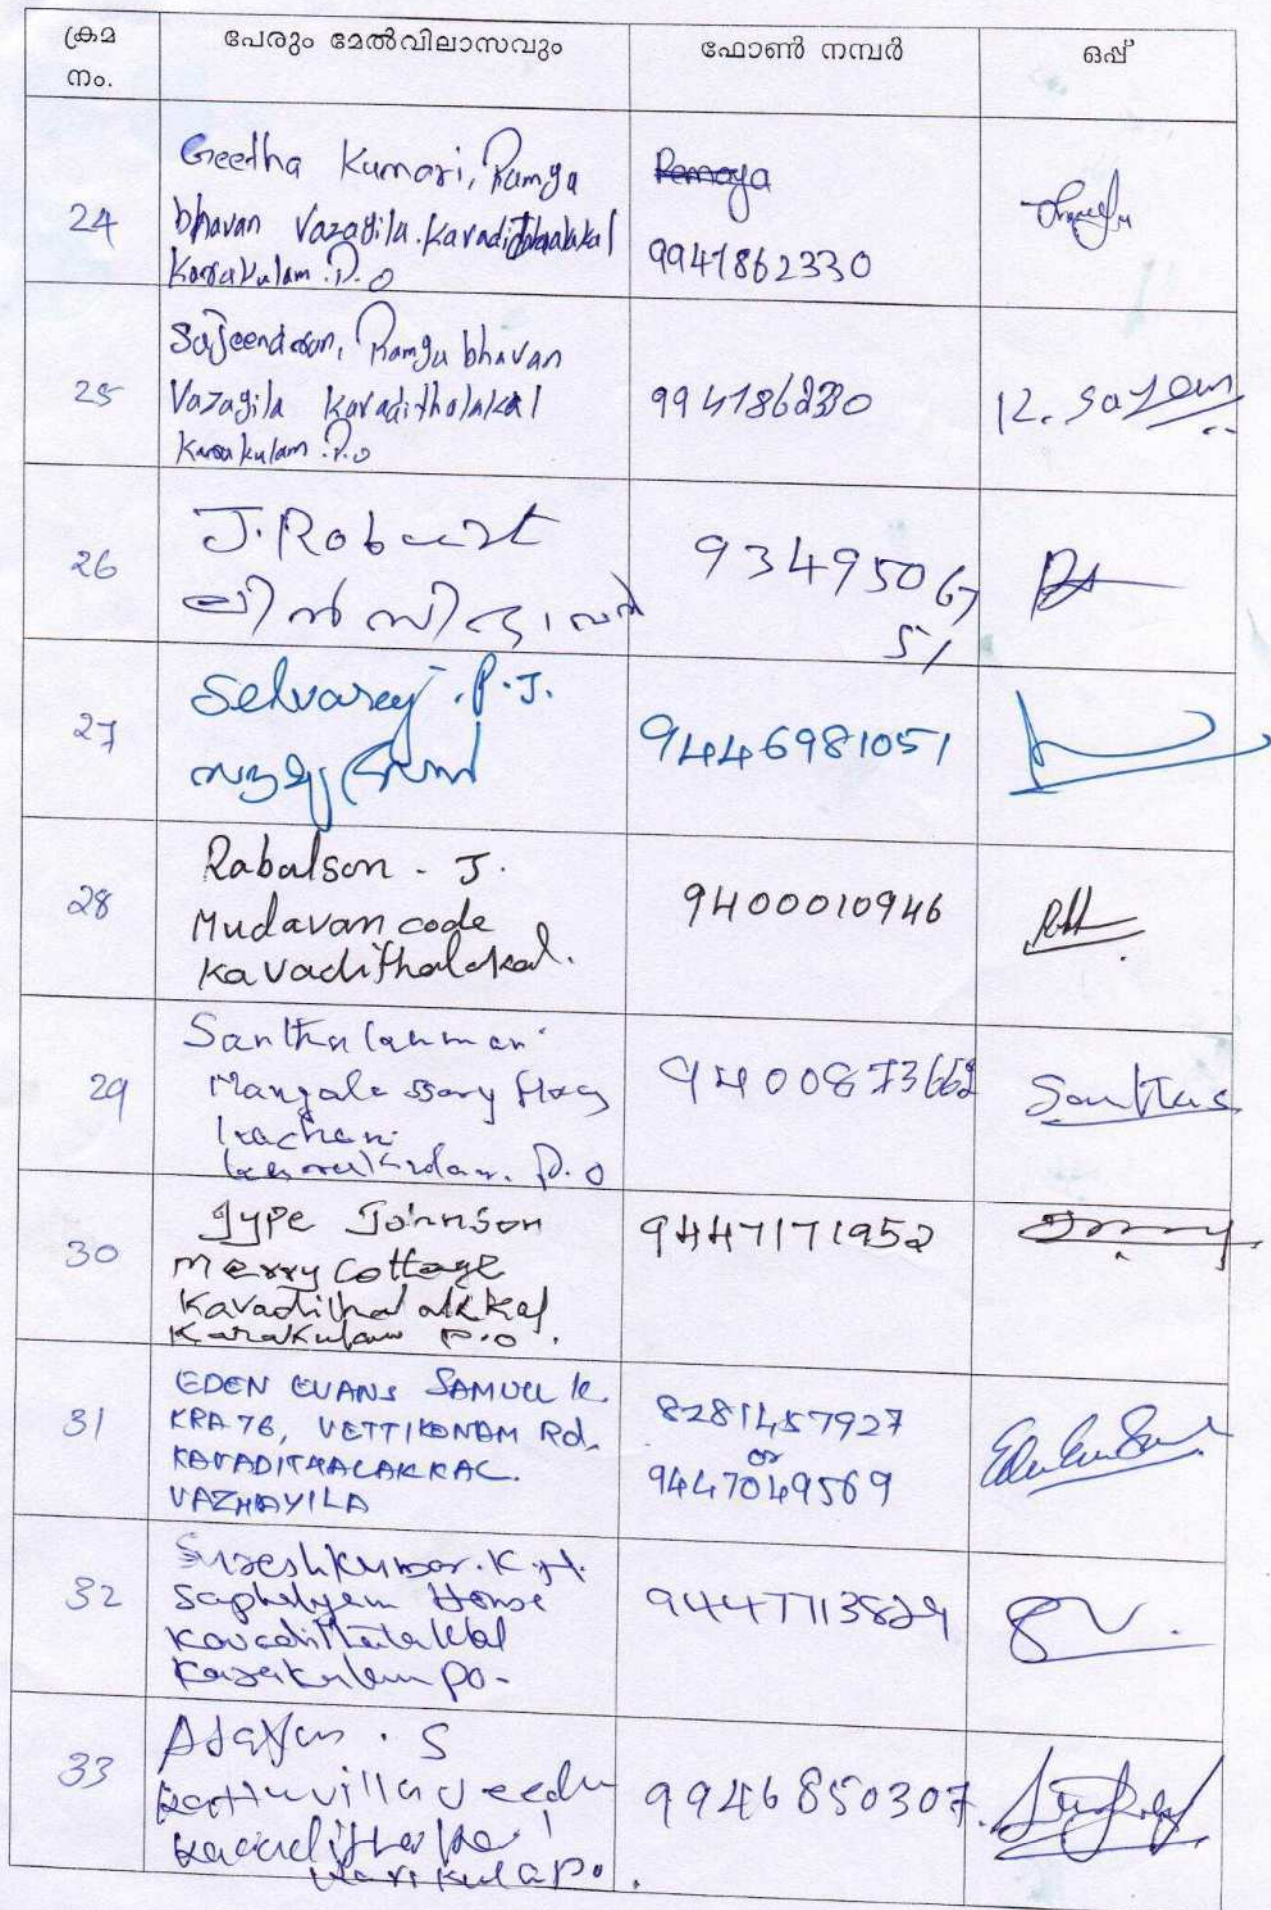 ക്രമ നം. പേരും മേൽവിലാസവും ഫോൺ നമ്പർ ഒപ്പ്
24
Geetha Kumari, Ramya
bhavan Vazayila. Kavaditholaakkal
Karakulam. P.O
Remaya
9947862330
25
Sajeendran, Ramya bhavan
Vazayila Kavaditholakal
Karakulam. P.O
9947862330
K. Sajeen
26
J. Robert
ലിൻസി ഭവൻ
93495067
51
27
Selvaraj . P. J.
9446981051
28
Rabalson - J.
Mudavan code
Kavadithalakal.
9400010946
29
Santhakumari
Mangalassary
P.O
Santha
30
Jype Johnson
Merry Cottage
Kavadithalakkal
Karakulam P.O.
9447171952
31
EDEN EVANS SAMUEL K.
KRA 76, VETTIKONAM Rd,
KAVADITHALAKKAL.
VAZHAYILA
8281457927
or
9447049569
32
Sureshkumar. K.
House
Kavadithalakkal
Karakulam PO-
9447713829
33
Ajayan . S
Kattuvilla veedu
9946850307.